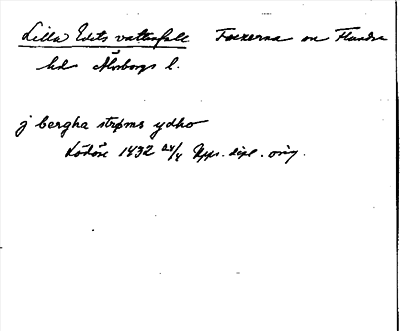 Lilla Edets vattenfall Foxerna sn Flundre
hd Älvsborgs l.
j bergha strøms ydho
Lödöse 1432 24/4 Upps. dipl. orig.